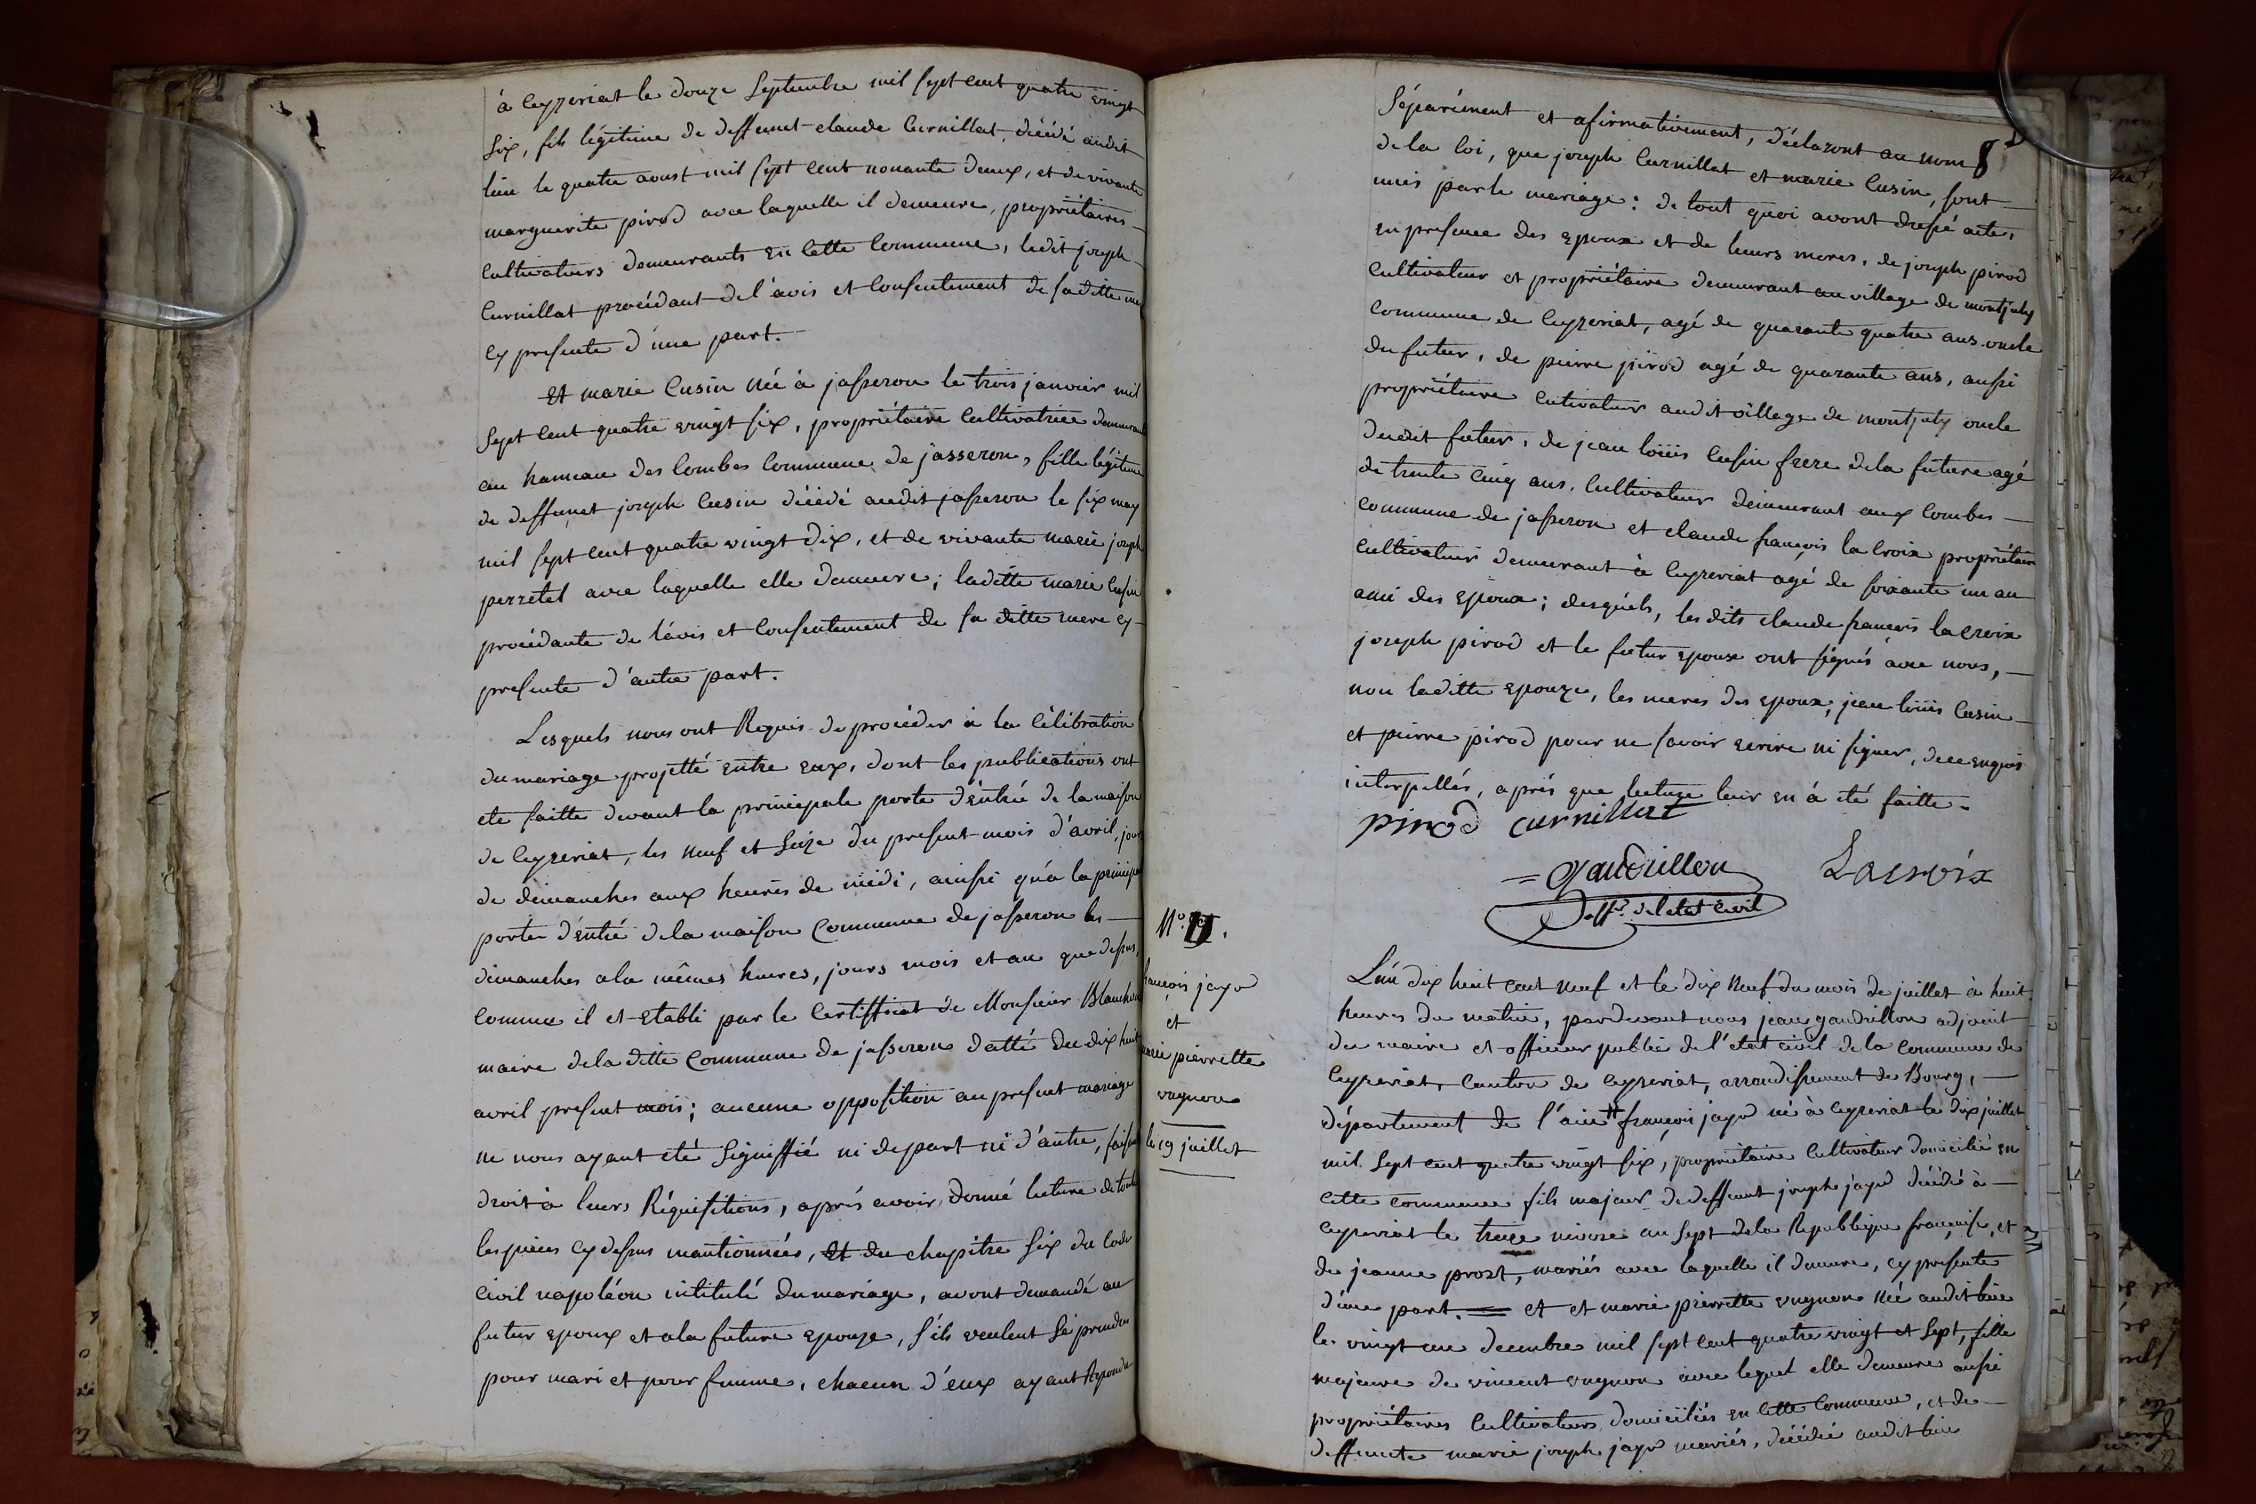 à Ceyzeriat le douze Septembre mil sept cent quatre vingt
six, fils légitime de deffunt claude Curnillat, décédé audit
lieu le quatre aoust mil sept cent nonante deux, et de vivante
marguerite pirod avec laquelle il demeure, propriétaires
cultivateurs demeurants en Cette Commune, ledit joseph
Curnillat procédant de l'avis et Consentement de sa ditte mere
cy presente d'une part.
Et marie Cusin née à jasseron le trois janvier mil
sept cent quatre vingt six, propriétaire Cultivatrice demeurant
au hameau des Combes Commune de jasseron, fille légitime
de deffunct joseph Cusin décédé audit jasseron le six may
mil sept cent quatre vingt dix, et de vivante marie joseph
perretet avec laquelle elle demeure; laditte marie Cusin
procédante de l'avis et Consentement de sa ditte mere cy
presente d'autre part.
Lesquels nous ont Requis de procéder à la Célébration
du mariage projetté entre eux, dont les publications ont
eté faitte devant la principale porte d'entrée de la maison
de Ceyzeriat, les neuf et seize du present mois d'avril, jours
de dimanches aux heures de midi, ainsi qu'a la principale
porte d'entré de la maison Commune de jasseron les
dimanches a la mêmes heures, jours mois et an que dessus,
comme il et etabli par le Certifficat de Monsieur Blanchon
maire de la ditte Commune de jasseron datté du dix huit
avril present mois; aucunne opposition au present mariage
ne nous ayant eté signiffié ni de part ni d'autre, faisant
droit à leurs Réquisitions, après avoir donné lecture de toutes
les pieces cy dessus mantionnées, et du chapitre Six du Code
Civil napoléon intitulé du mariage, avont demandé au
futur epoux et a la future epouze, s'ils veulent se prendre
pour mari et pour femme, chacun d'eux ayant Repondu
8
Séparément et afirmativement, déclaront au nom
de la loi, que joseph Curnillat et marie Cusin, sont
unis par le mariage: de tout quoi avont dressé acte,
en presence des epoux et de leurs meres, de joseph pirod
Cultivateur et propriétaire demeurant au village de montjuly
Commune de Ceyzeriat, agé de quarante quatre ans oncle
du futur, de pierre pirod agé de quarante ans, aussi
propriétaire cutivateur audit village de montjuly oncle
dudit futur, de jean loüis Cusin frere de la future agé
de trente Cinq ans, Cultivateur demeurant aux Combes
commune de jasseron et claude françois la Croix propriétaire
Cultivateur demeurant à Ceyzeriat agé de soixante un an
ami des epoux; desquels, les dits claude françois la croix
joseph pirod et le futur epoux ont signés avec nous,
non laditte epouze, les meres des epoux, jean loüis Cusin
et pierre pirod pour ne savoir ecrire ni signer, de ce enquis
interpellés, aprés que lecture leur en à eté faitte.
pirod curnillat
Gaudrillon Lacroix
off.r de l'etat civil
N.o
françois jayr
et
marie pierrette
vugnon
le 19 juillet
L'an dix huit cent neuf et le dix neuf du mois de juillet à huit
heures du matin, pardevant nous jean gaudrillon adjoint
du maire et officier public de l'état civil de la commune de
Ceyzeriat, Canton de Ceyzeriat, arrondissement de Bourg,
département de l'ain françois jayr né à Ceyzeriat le dix juillet
mil sept cent quatre vingt six, propriétaire Cultivateur domicilié en
cette commune fils majeur de deffunt joseph jayr décédé à
Ceyzeriat le treize nivose an sept de la Republique française, et
de jeanne prost, mariés avec laquelle il demeure, cy presente
d'une part. et et marie pierrette vugnon née audit lieu
le vingt un decembre mil sept cent quatre vingt et sept, fille
majeure de vincent vugnon avec lequel elle demeure aussi
propriétaires Cultivateurs domiciliés en Cette Commune, et de
deffuncte marie joseph jayr mariés, décédée audit lieu